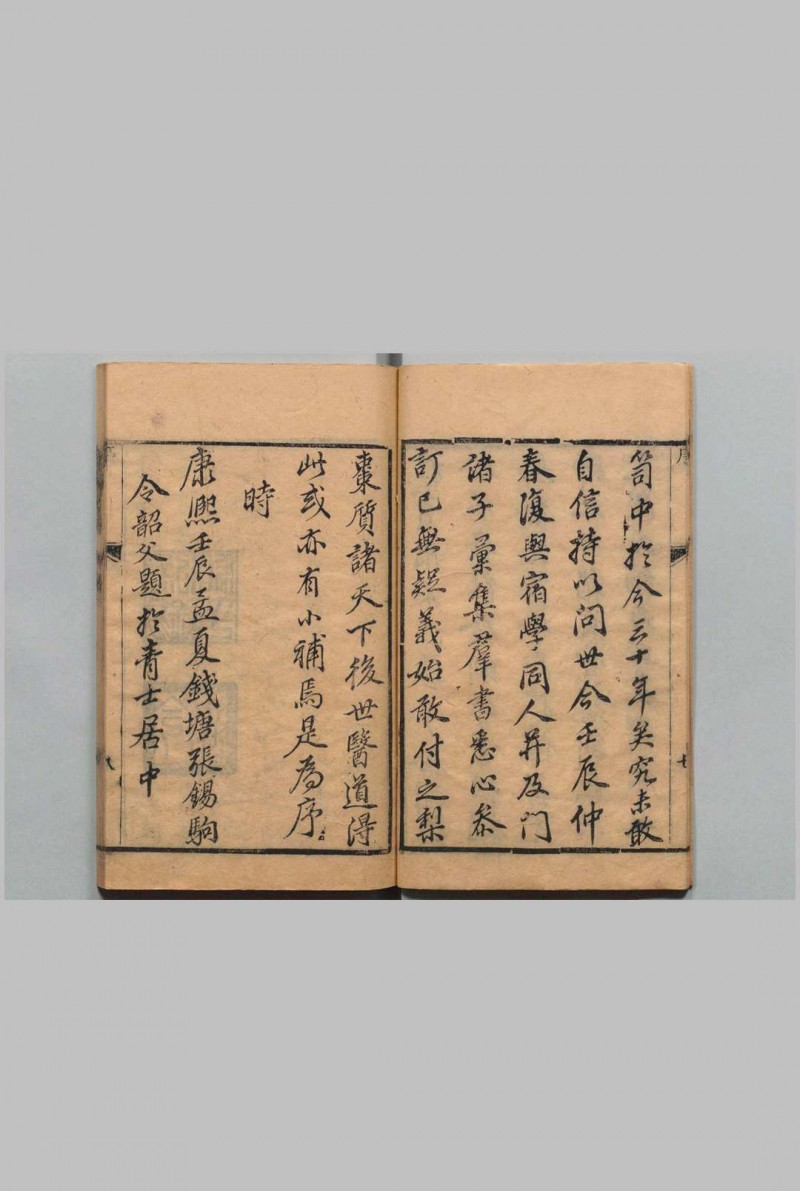 笥中於今三十年矣究未敢
自信持以問世今壬辰仲
春復與宿學同人并及門
諸子彙集羣書悉心叅
訂已無疑義始敢付之梨
棗質諸天下後世醫道得
此或亦有小補焉是為序
時
康熙壬辰孟夏錢塘張錫駒
令韶父題於青士居中
序
七